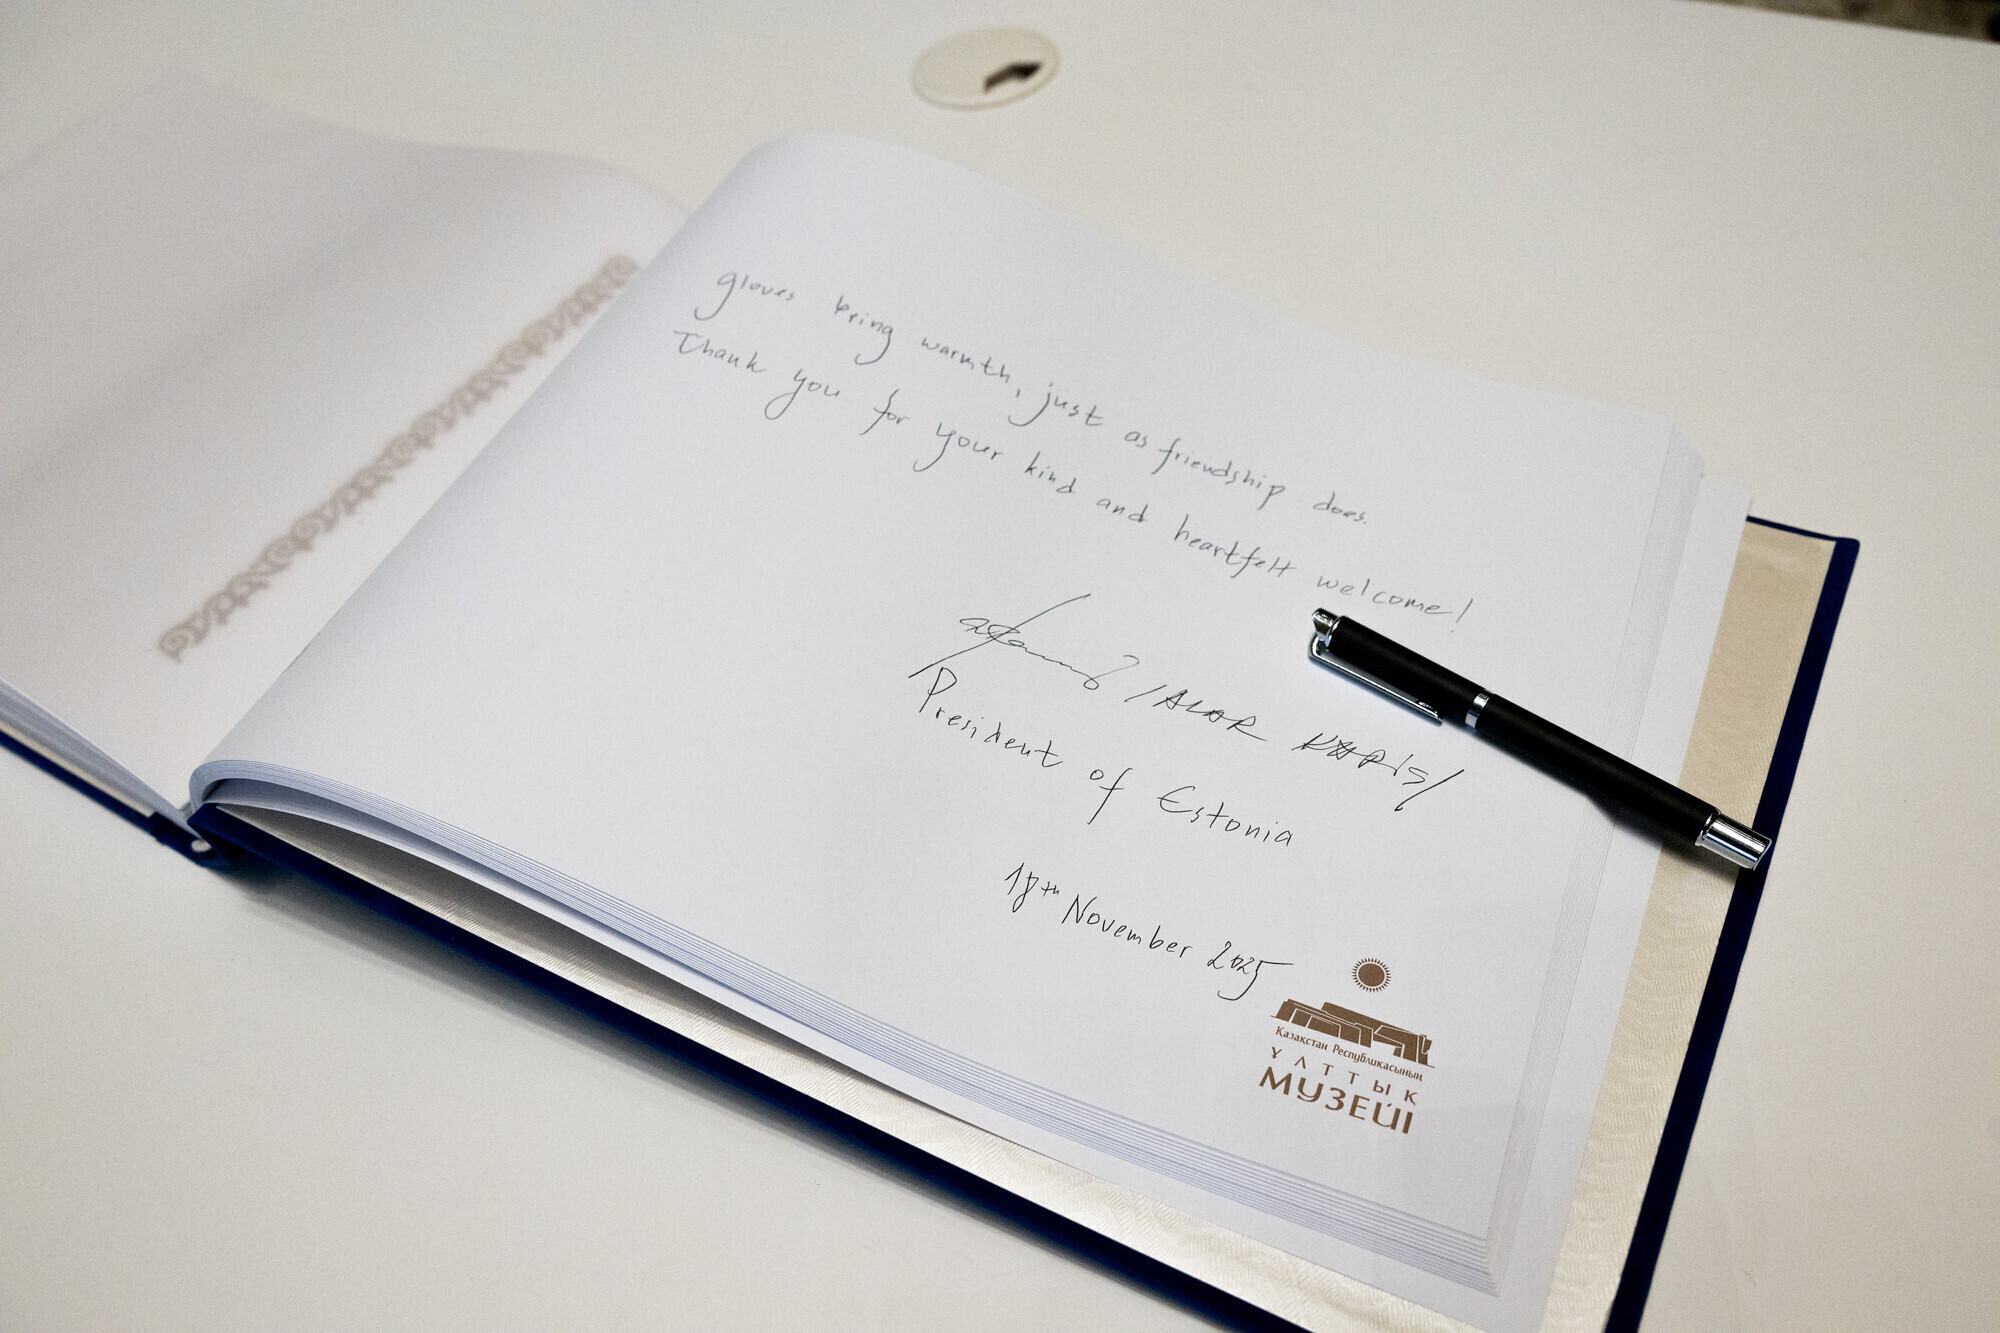 gloves bring warmth, just as friendship does.
Thank you for your kind and heartfelt welcome!
/ALAR KARIS/
President of Estonia
18th November 2025
Қазақстан Республикасының
ҰЛТТЫҚ
МУЗЕЙІ